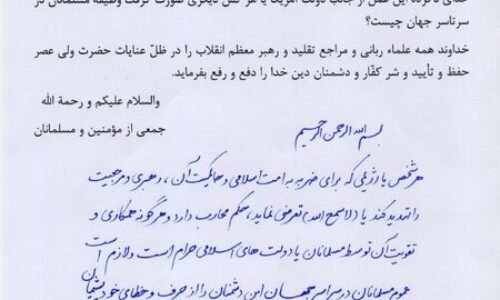 خدای ناکرده این عمل از جانب دولت آمریکا یا هر کس دیگری صورت گرفت وظیفه مسلمانان در
سرتاسر جهان چیست؟
خداوند همه علماء ربانی و مراجع تقلید و رهبر معظم انقلاب را در ظلّ عنایات حضرت ولی عصر
حفظ و تأیید و شر کفّار و دشمنان دین خدا را دفع و رفع بفرماید.
والسلام علیکم و رحمة الله
جمعی از مؤمنین و مسلمانان
بسم الله الرحمن الرحیم
هر شخص یا رژیمی که برای ضربه به امت اسلامی و حاکمیت آن، رهبری و مرجعیت
را تهدید کند یا (لاسمح الله) تعرضی نماید، حکم محارب دارد و هرگونه همکاری و
تقویت آن توسط مسلمانان یا دولت های اسلامی حرام است و لازم است
عموم مسلمانان در سراسر جهان این دشمنان را از حرف و خطای خود پشیمان